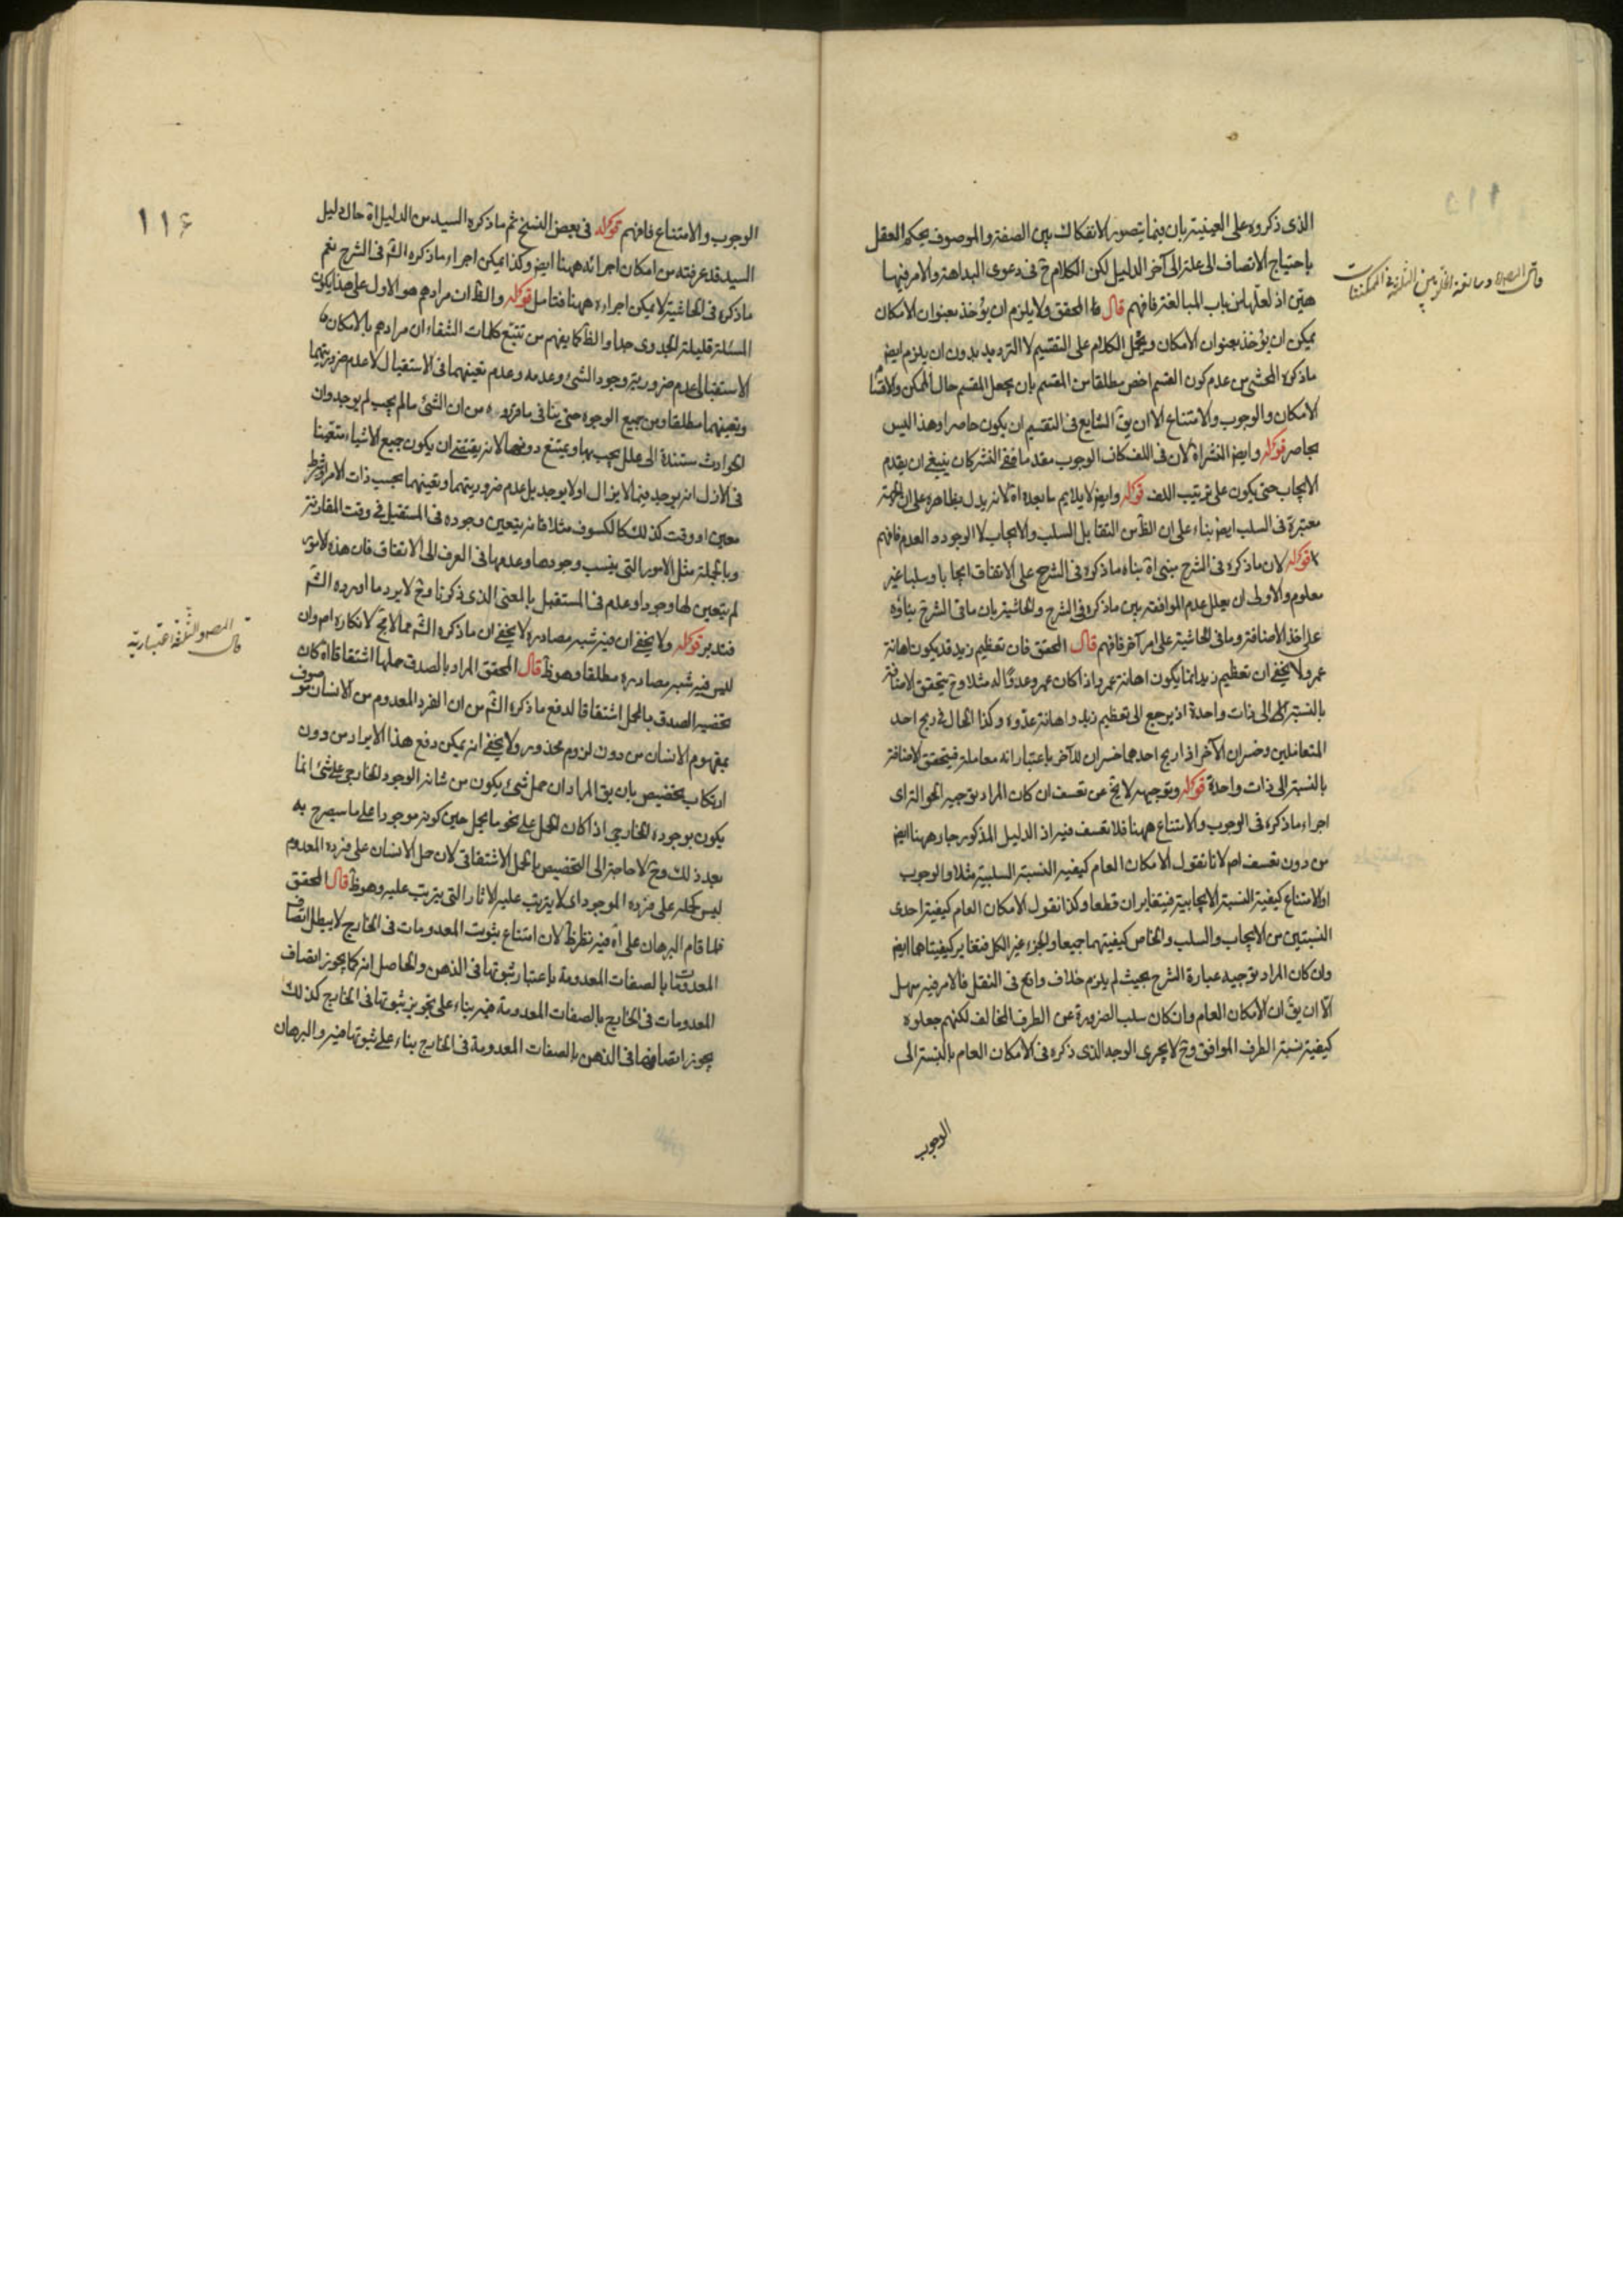 الذى ذكروه على العينية بان فيما يتصور الانفكاك بين الصفة والموصوف يحكم العقل
باحتياج الاتصاف الى علة الى آخر الدليل لكن الكلام ح فى دعوى البداهة والامر فيها
هين اذ لعلها من باب المبالغة فافهم قال المحقق ولا يلزم ان يؤخذ بعنوان الامكان
يمكن ان يؤخذ بعنوان الامكان ويحمل الكلام على التقسيم لا الترديد بدون ان يلزم ايض
ماذكره المحشى من عدم كون القسم اخص مطلقا من المقسم بان يجعل المقسم حال الممكن والاقسام
الامكان والوجوب والامتناع الا ان يق الشايع فى التقسيم ان يكون حاصرا وهذا ليس
بحاصر قوله وايض النشر اه لان فى اللف كان الوجوب مقدما ففى النشر كان ينبغى ان يقدم
الايجاب حتى يكون على ترتيب اللف قوله وايض لا يلايم ما بعده اه لانه يدل بظاهره على ان الجهة
معتبرة فى السلب ايض بناء على ان الظ من التقابل السلب والايجاب لا الوجود والعدم فافهم
قوله لان ماذكره فى الشرح مبنى اه بناه ماذكره فى الشرح على الاتفاق ايجابا وسلبا غير
معلوم والاولى ان يعلل عدم الموافقة بين ماذكره فى الشرح والحاشية بان ما فى الشرح بناؤه
على اخذ الاضافة وما فى الحاشية على امر آخر فافهم قال المحقق فان تعظيم زيد قد يكون اهانة
عمرو لا يخفى ان تعظيم زيد انما يكون اهانة عمرو اذا كان عمرو عدوا له مثلا وح يتحقق الاضافة
بالنسبة الى ذات واحدة اذ يرجع الى تعظيم زيد واهانة عدوه وكذا الحال فى ربح احد
المتعاملين وخسران الآخر اذ اربح احدهما خسران للآخر باعتبار انه معاملة فيتحقق الاضافة
بالنسبة الى ذات واحدة قوله وتوجيهه لا يخ عن تعسف ان كان المراد توجيه الحوالة اى
اجراء ماذكره فى الوجوب والامتناع ههنا فلا تعسف فيه اذ الدليل المذكور جار ههنا ايض
من دون تعسف اصلا لانا نقول الامكان العام كيفية النسبة السلبية مثلا والوجوب
او الامتناع كيفية النسبة الايجابية فيتغايران قطعا وكذا نقول الامكان العام كيفية احدى
النسبتين من الايجاب والسلب والخاص كيفيتهما جميعا والجزء غير الكل فتغاير كيفيتاهما ايض
وان كان المراد توجيه عبارة الشرح بحيث لم يلزم خلاف واقع فى النقل فالامر فيه سهل
الا ان يق ان الامكان العام وان كان سلب الضرورة عن الطرف المخالف لكنهم جعلوه
كيفية نسبة الطرف الموافق وح لا يجرى الوجه الذى ذكره فى الامكان العام بالنسبة الى
الوجوب
١١۶
الوجوب والامتناع فافهم قوله فى بعض النسخ ثم ماذكره السيد من الدليل اه حال دليل
السيد قد عرفته من امكان اجرائه ههنا ايض وكذا يمكن اجراء ماذكره الش فى الشرح نعم
ماذكره فى الحاشية لا يمكن اجراءه ههنا فتامل قوله والظ ان مرادهم هو الاول على هذا يكون
المسئلة قليلة الجدوى جدا والظ كما يفهم من تتبع كلمات الشفاء ان مرادهم بالامكان
الاستقبالى عدم ضرورية وجود الشئ وعدمه وعدم تعينهما فى الاستقبال لا عدم ضروريتهما
وتعينهما مطلقا ومن جميع الوجوه حتى ينافى ماقرره من ان الشئ مالم يجب لم يوجد وان
الحوادث مستندة الى علل يجب بها ويمتنع دونها لانه يقتضى ان يكون جميع الاشياء متعينا
فى الازل انه يوجد فيما لا يزال او لا يوجد بل عدم ضروريتهما وتعينهما بحسب ذات الامر او شرط
معين او وقت كذلك كالكسوف مثلا فانه يتعين وجوده فى المستقبل فى وقت المقارنة
وبالجملة مثل الامور التى ينسب وجودها وعدمها فى العرف الى الاتفاق فان هذه الامور
لم يتعين لها وجود او عدم فى المستقبل بالمعنى الذى ذكرنا وح لا يرد ما اورده الش
فتدبر قوله ولا يخفى ان فيه شبه مصادرة لا يخفى ان ماذكره الش مما لا مخ لانكاره اصلا وان
ليس فيه شبه مصادرة مطلقا وهو ظ قال المحقق المراد بالصدق حملها اشتقاقا اه كان
تخصيص الصدق بالحمل اشتقاقا لدفع ماذكره الش من ان الفرد المعدوم من الانسان موصوف
بمفهوم الانسان من دون لزوم محذور ولا يخفى انه يمكن دفع هذا الايراد من دون
ارتكاب تخصيص بان يق المراد ان حمل شئ يكون من شانه الوجود الخارجى على شئ انما
يكون بوجوده الخارجى اذا كان الحمل على نحو ما يحمل حين كونه موجودا على ما سيصرح به
بعد ذلك وح لا حاجة الى التخصيص بالحمل الاشتقاقى لان حمل الانسان على فرده المعدوم
ليس كحمله على فرده الموجود اى لا يترتب عليه الاثار التى يترتب عليه وهو ظ قال المحقق
فلما قام البرهان على اه فيه نظر ظ لان امتناع ثبوت المعدومات فى الخارج لا يبطل اتصاف
المعدومات بالصفات المعدومة باعتبار ثبوتها فى الذهن والحاصل انه كما يجوز اتصاف
المعدومات فى الخارج بالصفات المعدومة فيه بناء على تجويز ثبوتها فى الخارج كذلك
يجوز اتصافها فى الذهن بالصفات المعدومة فى الخارج بناء على ثبوتها فيه والبرهان
قال المصر والثلثة اعتبارية